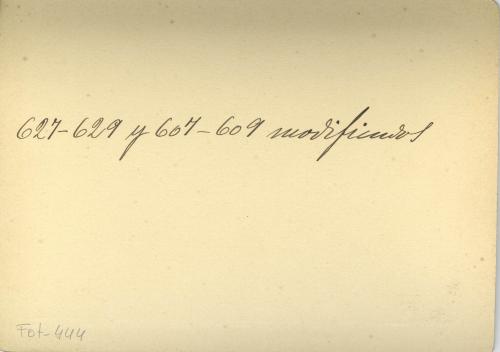 627-629 y 607-609 modificados
Fot-444